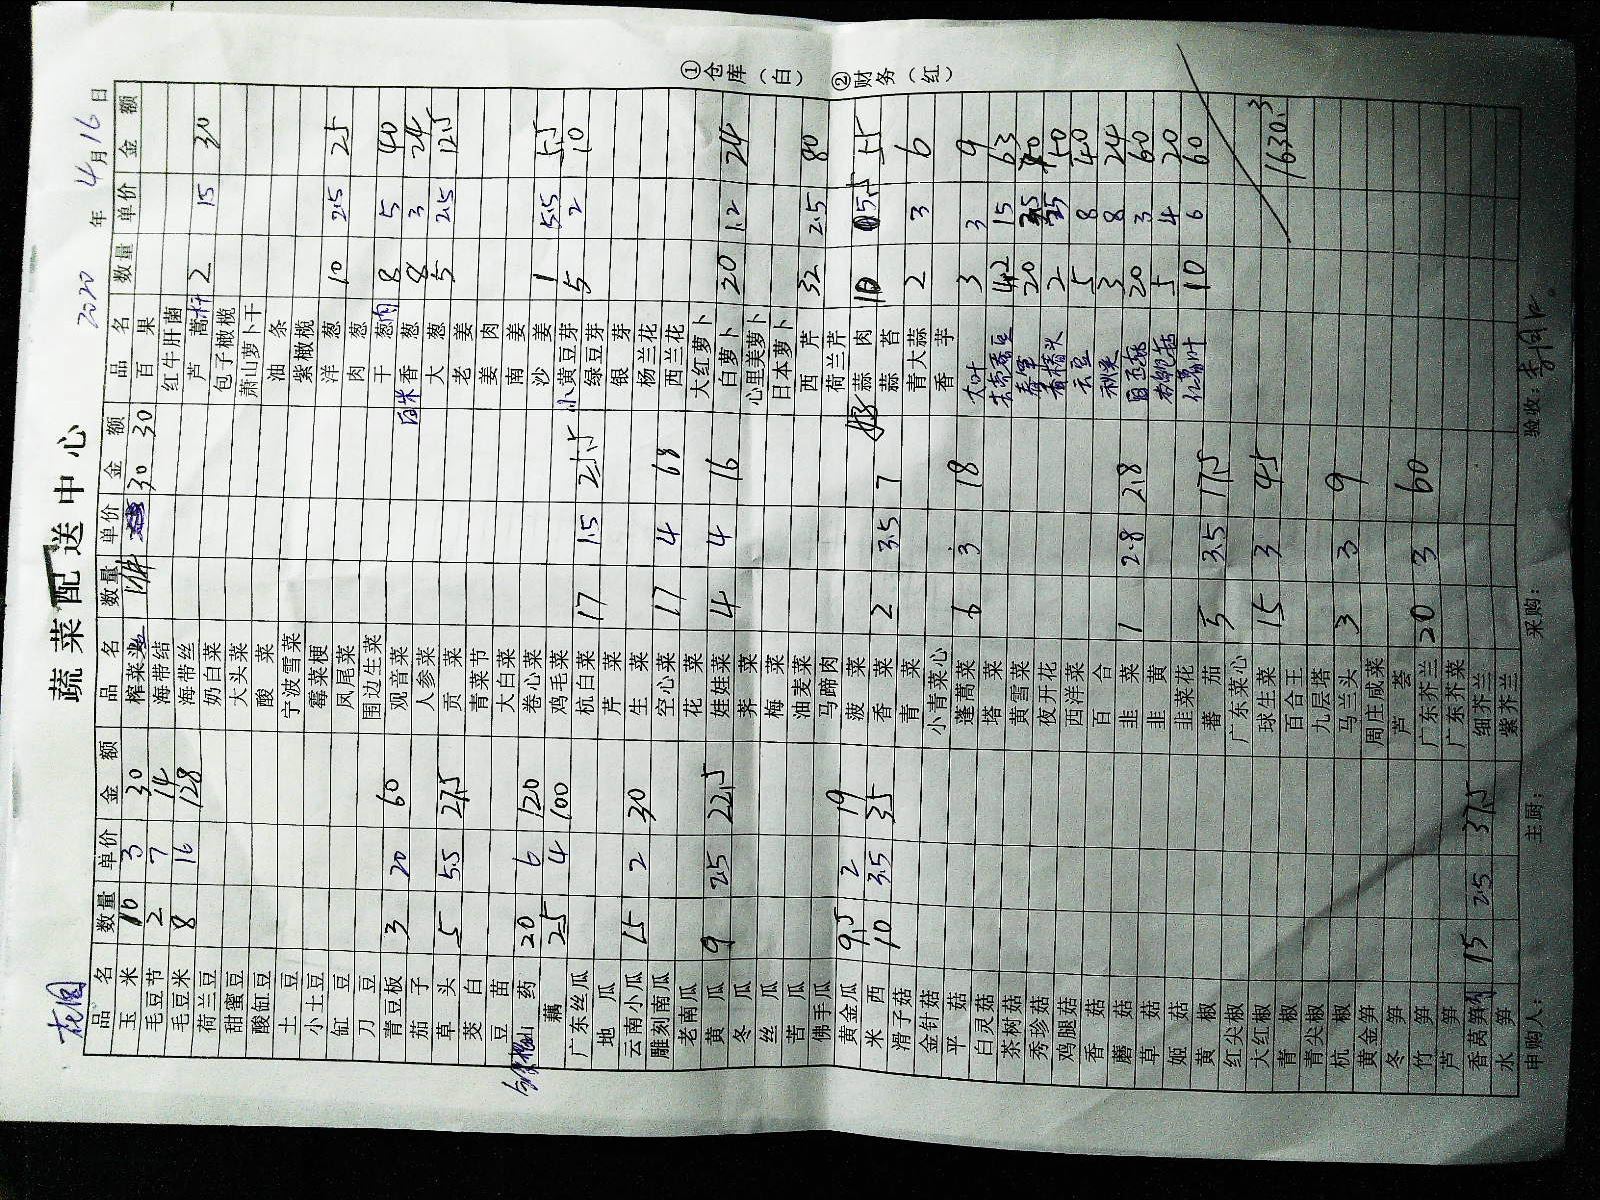 蔬菜配送中心
花园
2020 年 4月16日
品名 数量 单价 金额 品名 数量 单价 金额 品名 数量 单价 金额
玉米 10 3 30 榨菜 1件 30 30 百果
毛豆节 2 7 14 海带结 红牛肝菌
毛豆米 8 16 128 海带丝 芦蒿杆 2 15 30
荷兰豆 奶白菜 包子橄榄
甜蜜豆 大头菜 萧山萝卜干
酸缸豆 酸菜 油条
土豆 宁波雪菜 紫橄榄
小土豆 霉菜梗 洋葱 10 2.5 25
缸豆 凤尾菜 肉葱
刀豆 围边生菜 干葱肉 8 5 40
青豆板 3 20 60 观音菜 香葱 8 3 24
茄子 人参菜 大葱 5 2.5 12.5
草头 5 5.5 27.5 贡菜 老姜
茭白 青菜节 姜肉
豆苗 大白菜 南姜
山药 20 6 120 卷心菜 沙姜 1 5.5 5.5
藕 25 4 100 鸡毛菜 小黄豆芽 5 2 10
广东丝瓜 杭白菜 17 1.5 25.5 绿豆芽
地瓜 芹菜 银芽
云南小瓜 15 2 30 生菜 杨兰花
雕刻南瓜 空心菜 17 4 68 西兰花
老南瓜 花菜 大红萝卜
黄瓜 9 2.5 22.5 娃娃菜 4 4 16 白萝卜 20 1.2 24
冬瓜 荠菜 心里美萝卜
丝瓜 梅菜 日本萝卜
苦瓜 油麦菜 西芹 32 2.5 80
佛手瓜 马蹄肉 荷兰芹
黄金瓜 9.5 2 19 菠菜 蒜肉 10 5.5 55
米西 10 3.5 35 香菜 2 3.5 7 蒜苔
滑子菇 青菜 青大蒜 2 3 6
金针菇 小青菜心 香芋
平菇 蓬蒿菜 6 3 18 大叶 3 3 9
白灵菇 塔菜 4.2 15 63
茶树菇 黄雪菜 20
秀珍菇 夜开花 2
鸡腿菇 西洋菜 云豆 5 8 40
香菇 百合 3 8 24
蘑菇 韭菜 1 2.8 2.8 20 3 60
草菇 韭黄 5 4 20
姬菇 韭菜花 10 6 60
黄椒 蕃茄 5 3.5 17.5
红尖椒 广东菜心
大红椒 球生菜 15 3 45 1630.3
青椒 百合王
青尖椒 九层塔
杭椒 马兰头 3 3 9
黄金笋 周庄咸菜
冬笋 芦荟
竹笋 广东芥兰 20 3 60
芦笋 广东芥菜
香莴笋 15 2.5 37.5 细芥兰
水笋 紫芥兰
申购人： 主厨： 采购： 验收：
①仓库（白） ②财务（红）